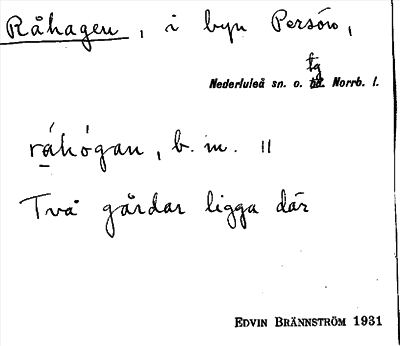 Råhagen, i byn Persön,
tg
Nederluleå sn. o. Norrb. l.
ráhógan, b. m. ||
Två gårdar ligga där
EDVIN BRÄNNSTRÖM 1931